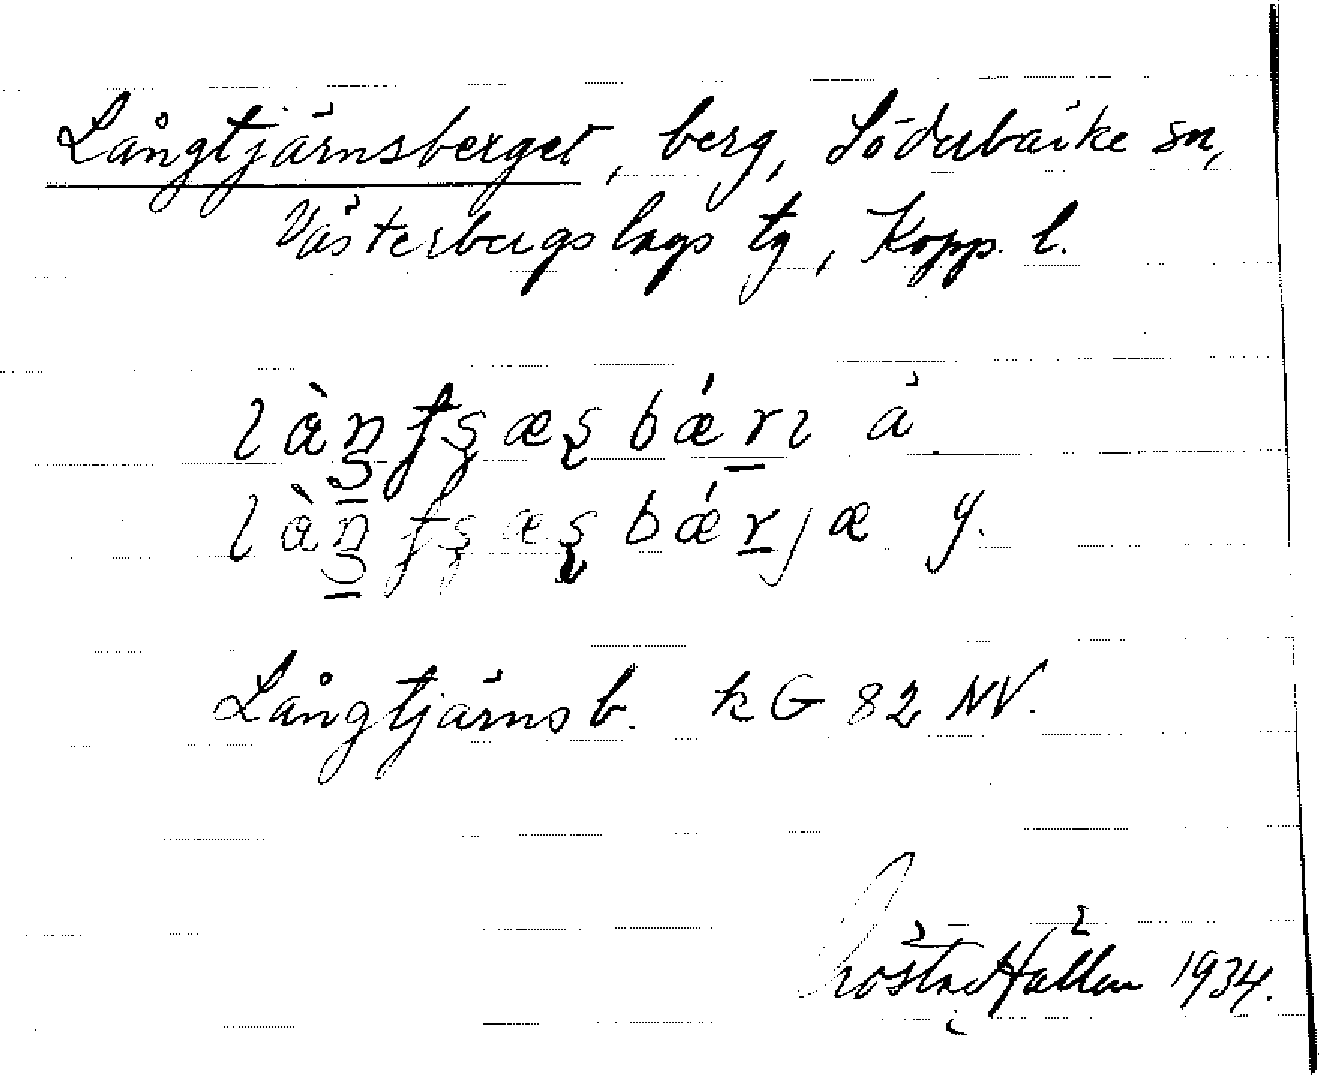 Långtjärnsberget, berg, Söderbärke sn,
Västerbergslags tg, Kopp. l.
làŋ̱ʈʂæʂbǽṟı ä
làŋ̱ʈʂæʂbǽṟjæ y.
Långtjärnsb. kG 82 NV.
Hallen 1934.